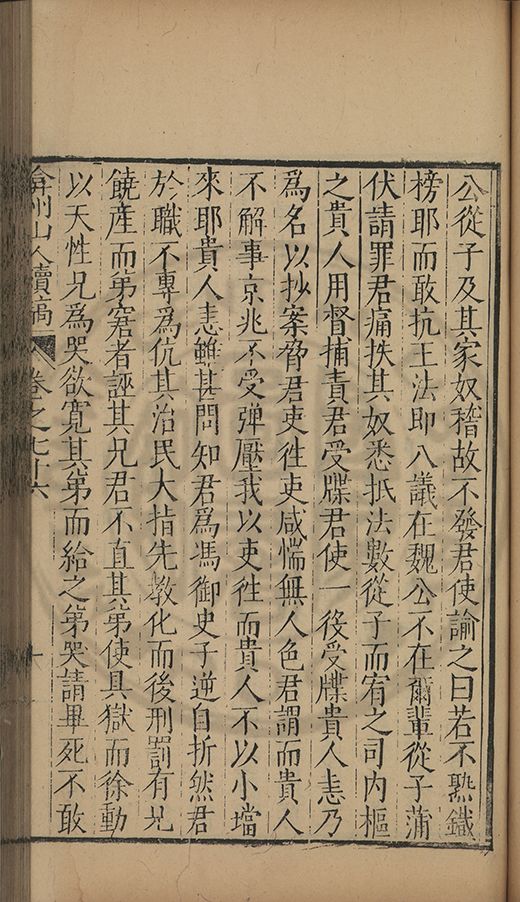 公從子及其家奴稽故不發君使諭之曰若不熟鐵
榜耶而敢抗王法即八議在魏公不在爾輩從子蒲
伏請罪君痛抶其奴悉抵法數從子而宥之司內樞
之貴人用督捕責君受牒君使一役受牒貴人恚乃
爲名以抄案脅君吏徃吏咸惴無人色君謂而貴人
不解事京兆不受弹壓我以吏徃而貴人不以小璫
來耶貴人恚雖甚問知君爲馮御史子逆自折然君
於職不專爲伉其治民大指先教化而後刑罰有兄
饒產而弟窘者誣其兄君不直其弟使具獄而徐動
以天性兄爲哭欲寬其弟而給之弟哭請畢死不敢
弇州山人續稿 卷之七十六 十